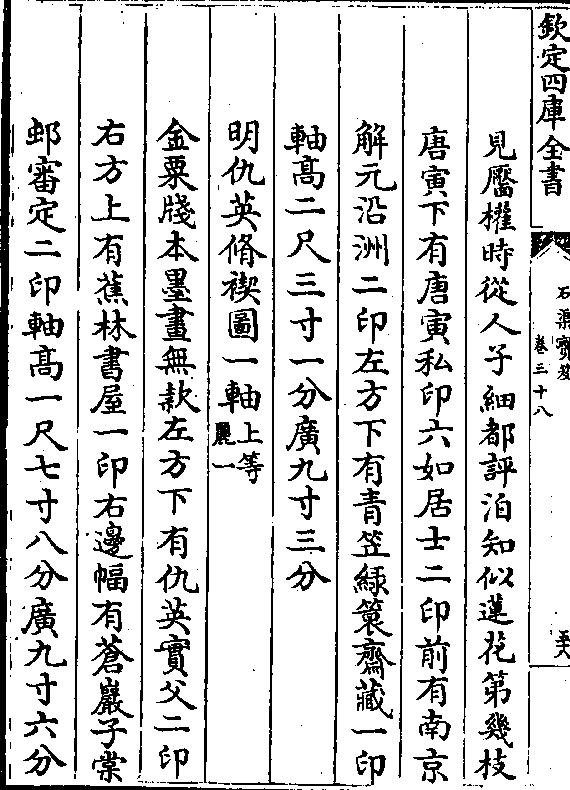 欽定四庫全書
石渠寶笈
卷三十八
見靨㰌時從人子細都評泊知似蓮花第幾枝
唐寅下有唐寅私印六如居士二印前有南京
解元沿洲二印左方下有青笠緑簑齋藏一印
軸髙二尺三寸一分廣九寸三分
明仇英脩禊圖一軸上等
麗一
金粟牋本墨畫無款左方下有仇英實父二印
右方上有蕉林書屋一印右邊幅有蒼巖子棠
邨審定二印軸髙一尺七寸八分廣九寸六分